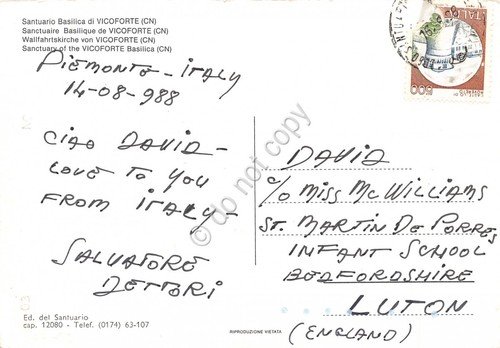 Santuario Basilica di VICOFORTE (CN)
Sanctuaire Basilique de VICOFORTE (CN)
Wallfahrtskirche von VICOFORTE (CN)
Sanctuary of the VICOFORTE Basilica (CN)
PIEMONTE - ITALY
14-08-988
CIAO DAVID -
LOVE TO YOU
FROM ITALY -
SALVATORE
DETTORI
Ed. del Santuario
cap. 12080 - Telef. (0174) 63-107
RIPRODUZIONE VIETATA
ITALIA
500
DAVID
c/o MISS McWILLIAMS
ST. MARTIN DE PORRES
INFANT SCHOOL
BEDFORDSHIRE
LUTON
(ENGLAND)
do not copy